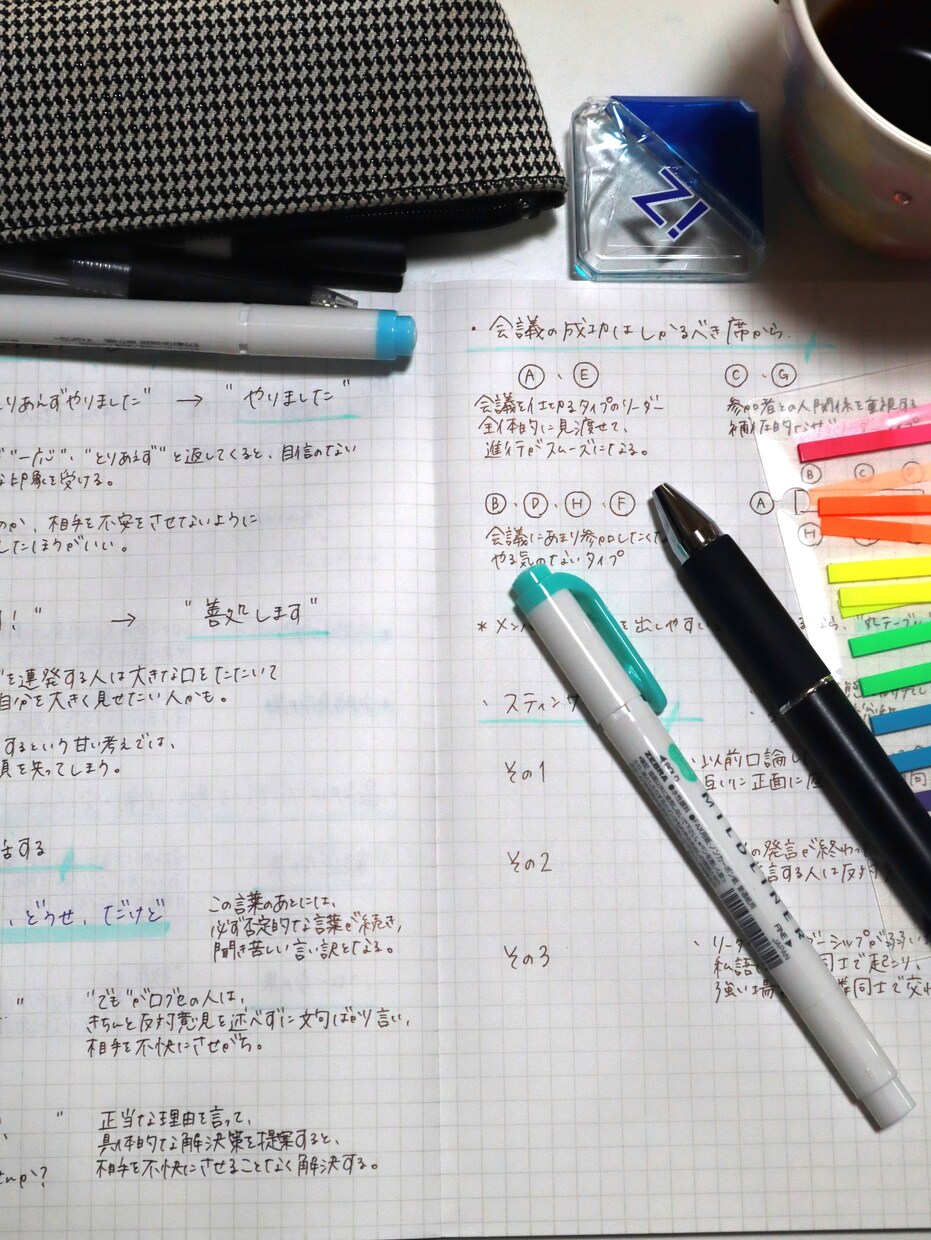 Z!
とりあえずやりました" → "やりました"
"一応"、"とりあえず"と返してくると、自信のない
な印象を受ける。
のか、相手を不安をさせないように
したほうがいい。
! " → "善処します"
を連発する人は大きな口をたたいて
自分を大きく見せたい人かも。
するという甘い考えでは、
を失ってしまう。
話する
、どうせ、だけど
この言葉のあとには、
必ず否定的な言葉が続き、
聞き苦しい言い訳となる。
"でも"が口ぐせの人は、
きちんと反対意見を述べずに文句ばかり言い、
相手を不快にさせがち。
正当な理由を言って、
具体的な解決策を提案すると、
相手を不快にさせることなく解決する。
・会議の成功はしかるべき席から.
Ⓐ、Ⓔ
会議を仕切るタイプのリーダー
全体的に見渡せて、
進行がスムーズになる。
Ⓒ、Ⓖ
参加者との人間関係を重視する
Ⓑ Ⓒ
Ⓐ
Ⓗ
Ⓑ、Ⓓ、Ⓗ、Ⓕ
会議にあまり参加したくな
やる気のないタイプ
*メン を出しやす
、スティンザ
その1
、以前口論し
互いに正面に
その2
の発言が終わっ
言する人は反対
その3
、リーダ ーシップが弱い
私語 同士で起こり、
強い場 隣同士で交わ
ZEBRA
MILDLINER
FINE
JAPAN